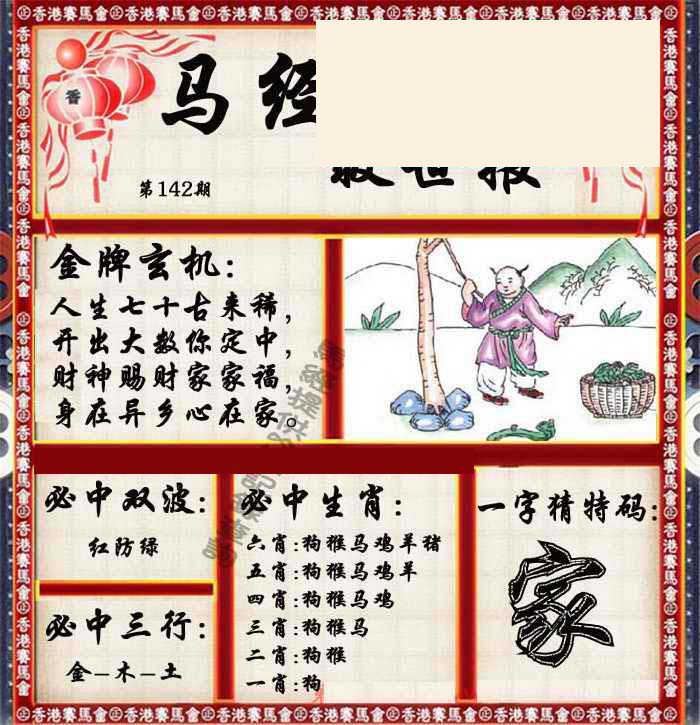 香港賽馬會
香
马经
救世报
第142期
金牌玄机:
人生七十古来稀,
开出大数你定中,
财神赐财家家福,
身在异乡心在家。
必中双波:
红防绿
必中三行:
金-木-土
必中生肖:
六肖:狗猴马鸡羊猪
五肖:狗猴马鸡羊
四肖:狗猴马鸡
三肖:狗猴马
二肖:狗猴
一肖:狗
一字猜特码:
家